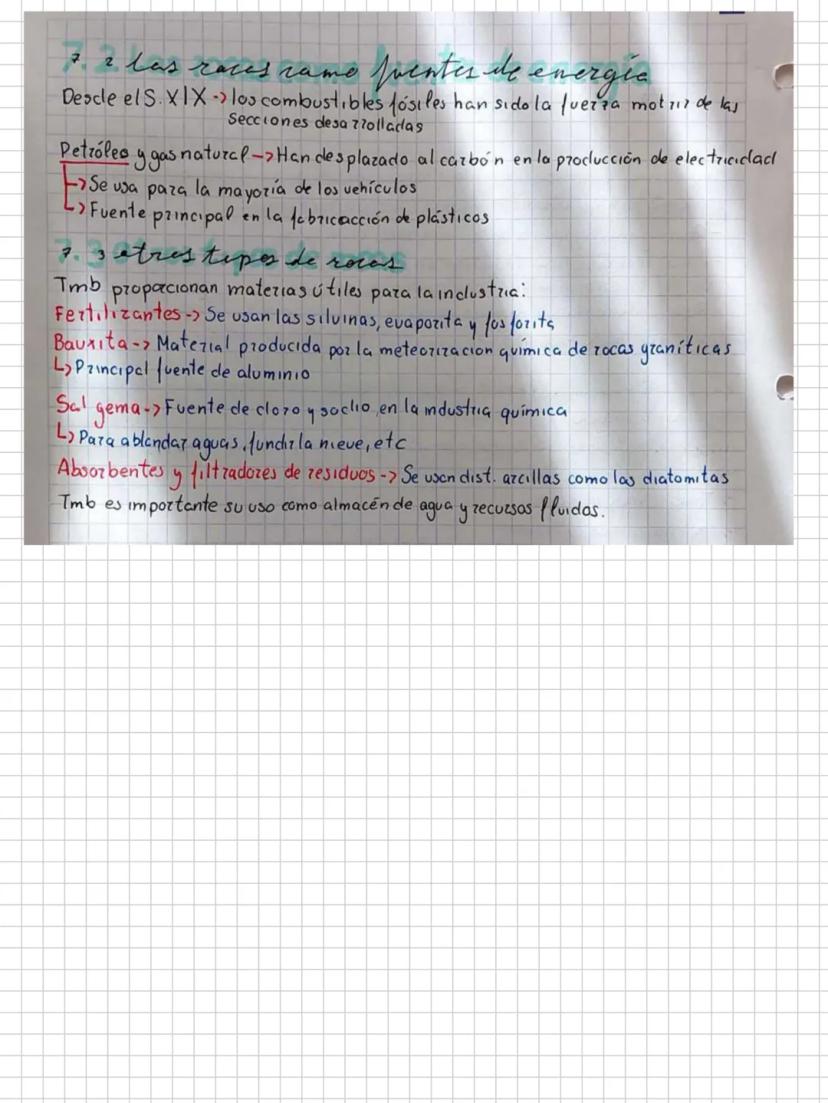 7.2 Las rocas como fuentes de energía
Desde el S.XIX -> los combustibles fósiles han sido la fuerza motriz de las
Secciones desarrolladas
Petróleo y gas natural -> Han desplazado al carbón en la producción de electricidad
↳ Se usa para la mayoría de los vehículos
↳ Fuente principal en la fabricacción de plásticos
7.3 otros tipos de rocas
Tmb proporcionan materias útiles para la industria:
Fertilizantes -> Se usan las silvinas, evaporita y fosforita
Bauxita -> Material producida por la meteorizacion química de rocas graníticas
↳ Principal fuente de aluminio
Sal gema -> Fuente de cloro y sodio en la industria química
↳ Para ablandar aguas, fundir la nieve, etc
Absorbentes y filtradores de residuos -> Se usan dist. arcillas como las diatomitas
Tmb es importante su uso como almacén de agua y recursos fluidos.